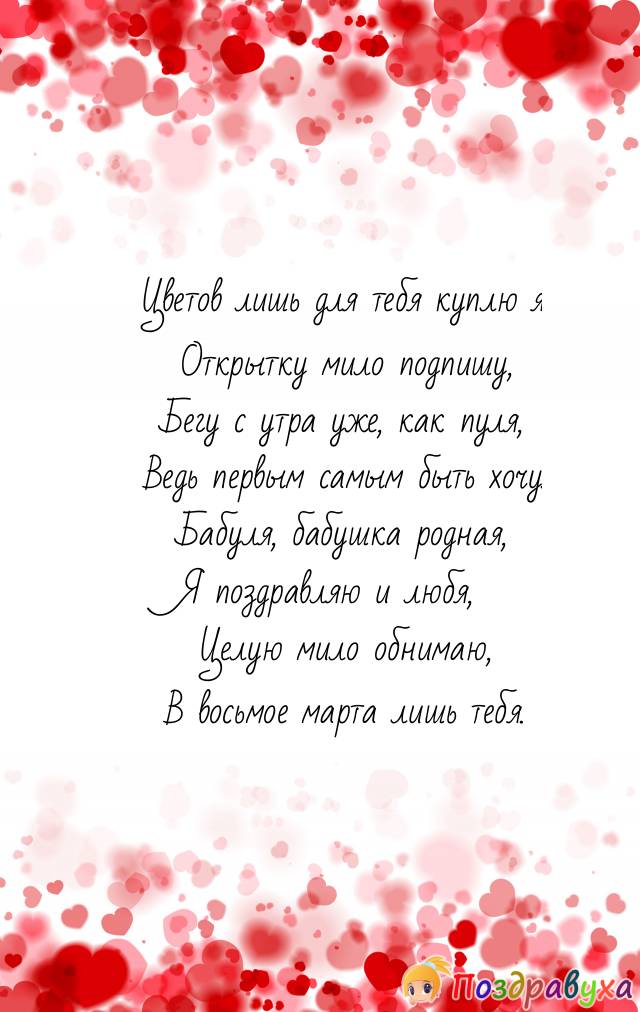 Цветов лишь для тебя куплю я
Открытку мило подпишу,
Бегу с утра уже, как пуля,
Ведь первым самым быть хочу.
Бабуля, бабушка родная,
Я поздравляю и любя,
Целую мило обнимаю,
В восьмое марта лишь тебя.
Поздравуха